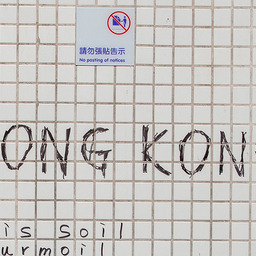 請勿張貼告示
No posting of notices
ONG KON
is soil
urmoil